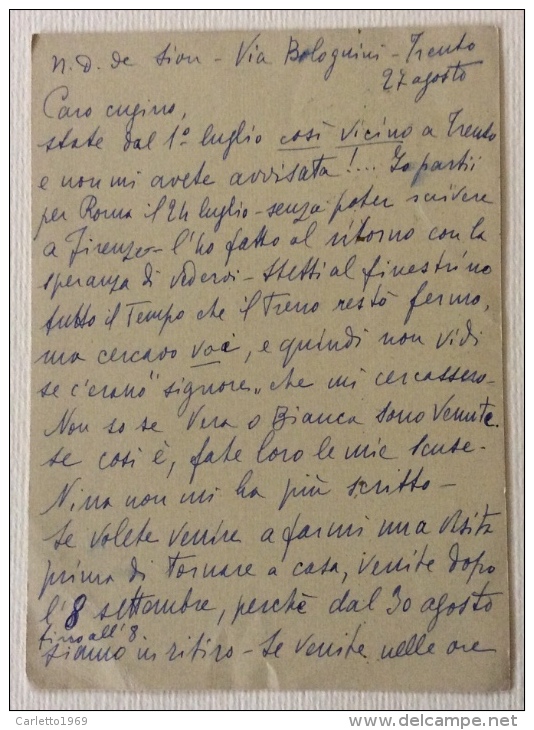 N. D. de Sion - Via Bolognini - Trento
27 agosto
Caro cugino,
state dal 1º luglio così vicino a Trento
e non mi avete avvisata!... Io partii
per Roma il 24 luglio - senza poter scrivere
a Firenze - l'ho fatto al ritorno con la
speranza di vedervi - stetti al finestrino
tutto il Tempo che il Treno restò fermo,
ma cercavo voi, e quindi non vidi
se c'erano "signore" che mi cercassero -
Non so se Vera o Bianca sono venute.
se così è, fate loro le mie scuse -
Nina non mi ha più scritto -
Se volete venire a farmi una visita
prima di Tornare a casa, venite dopo
l'8 settembre, perchè dal 30 agosto
fino all'8
siamo in ritiro - Se venite nelle ore
Carletto1969
www.delcampe.net